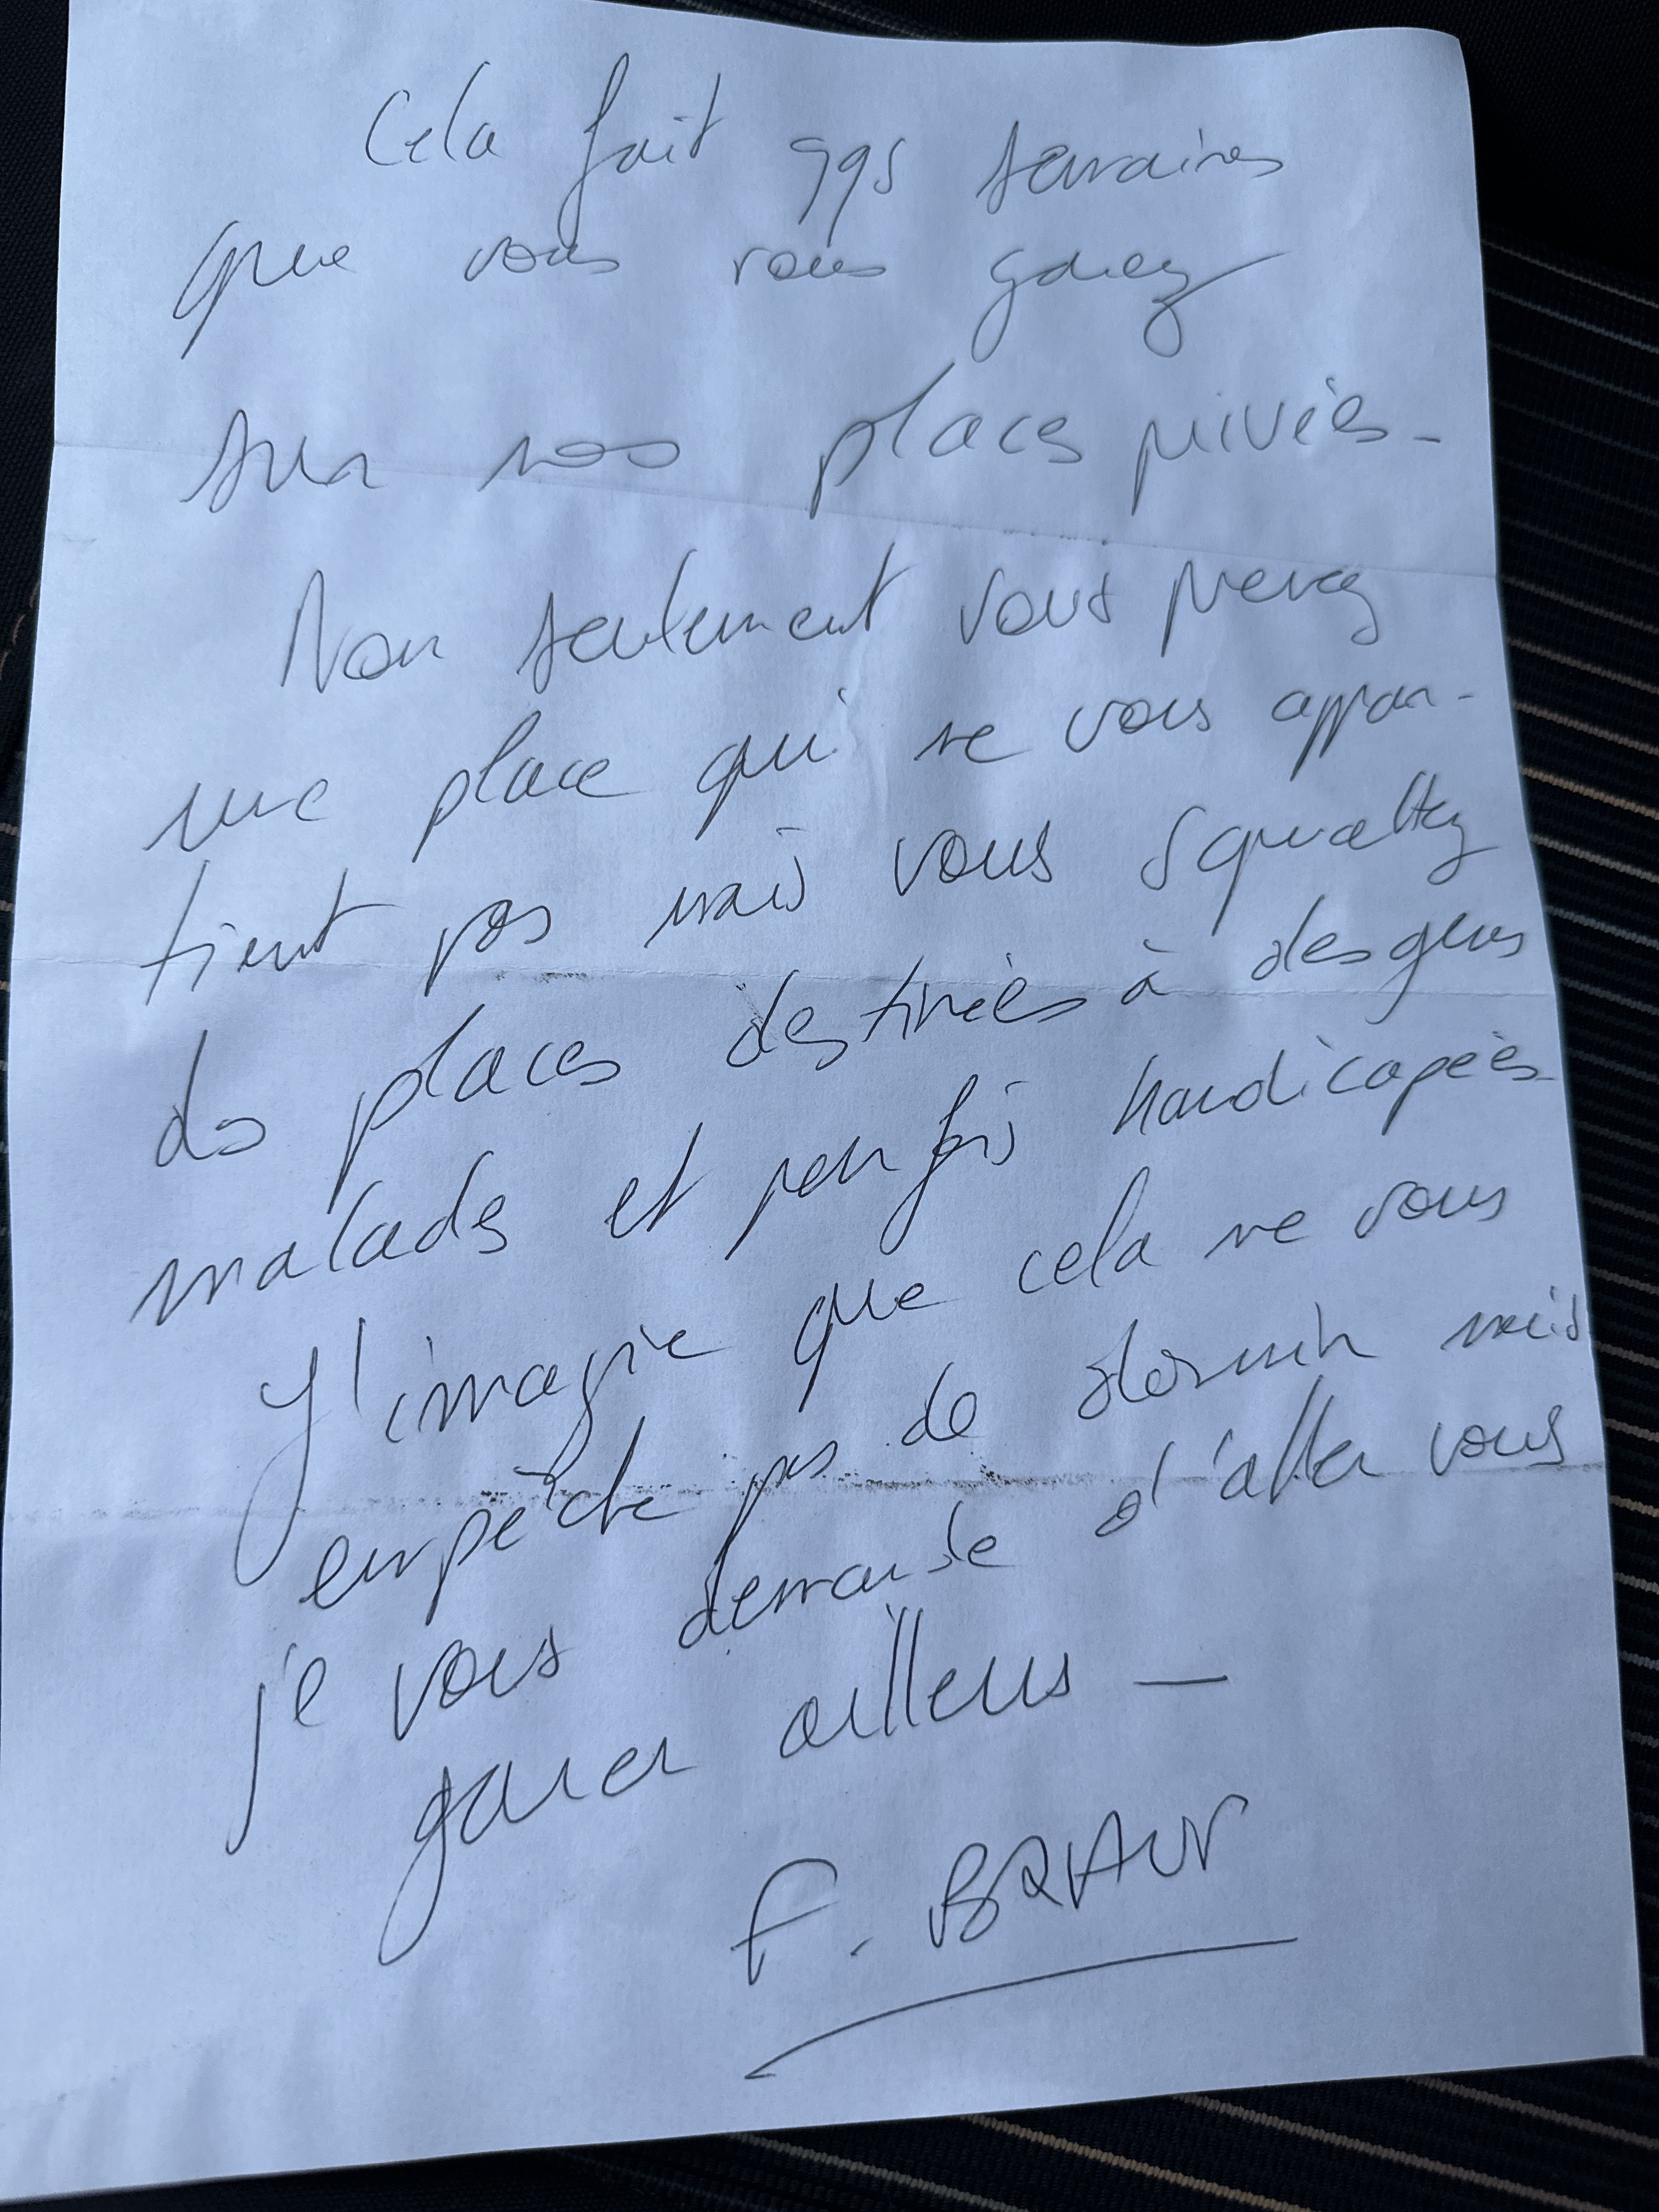 Cela fait qqs semaines
que vous vous garez
sur nos places privées.
Non seulement vous prenez
une place qui ne vous appar-
tient pas mais vous squattez
des places destinées à des gens
malades et parfois handicapées.
J'imagine que cela ne vous
empêche pas de dormir mais
je vous demande d'aller vous
garer ailleurs —
F. BRAUN